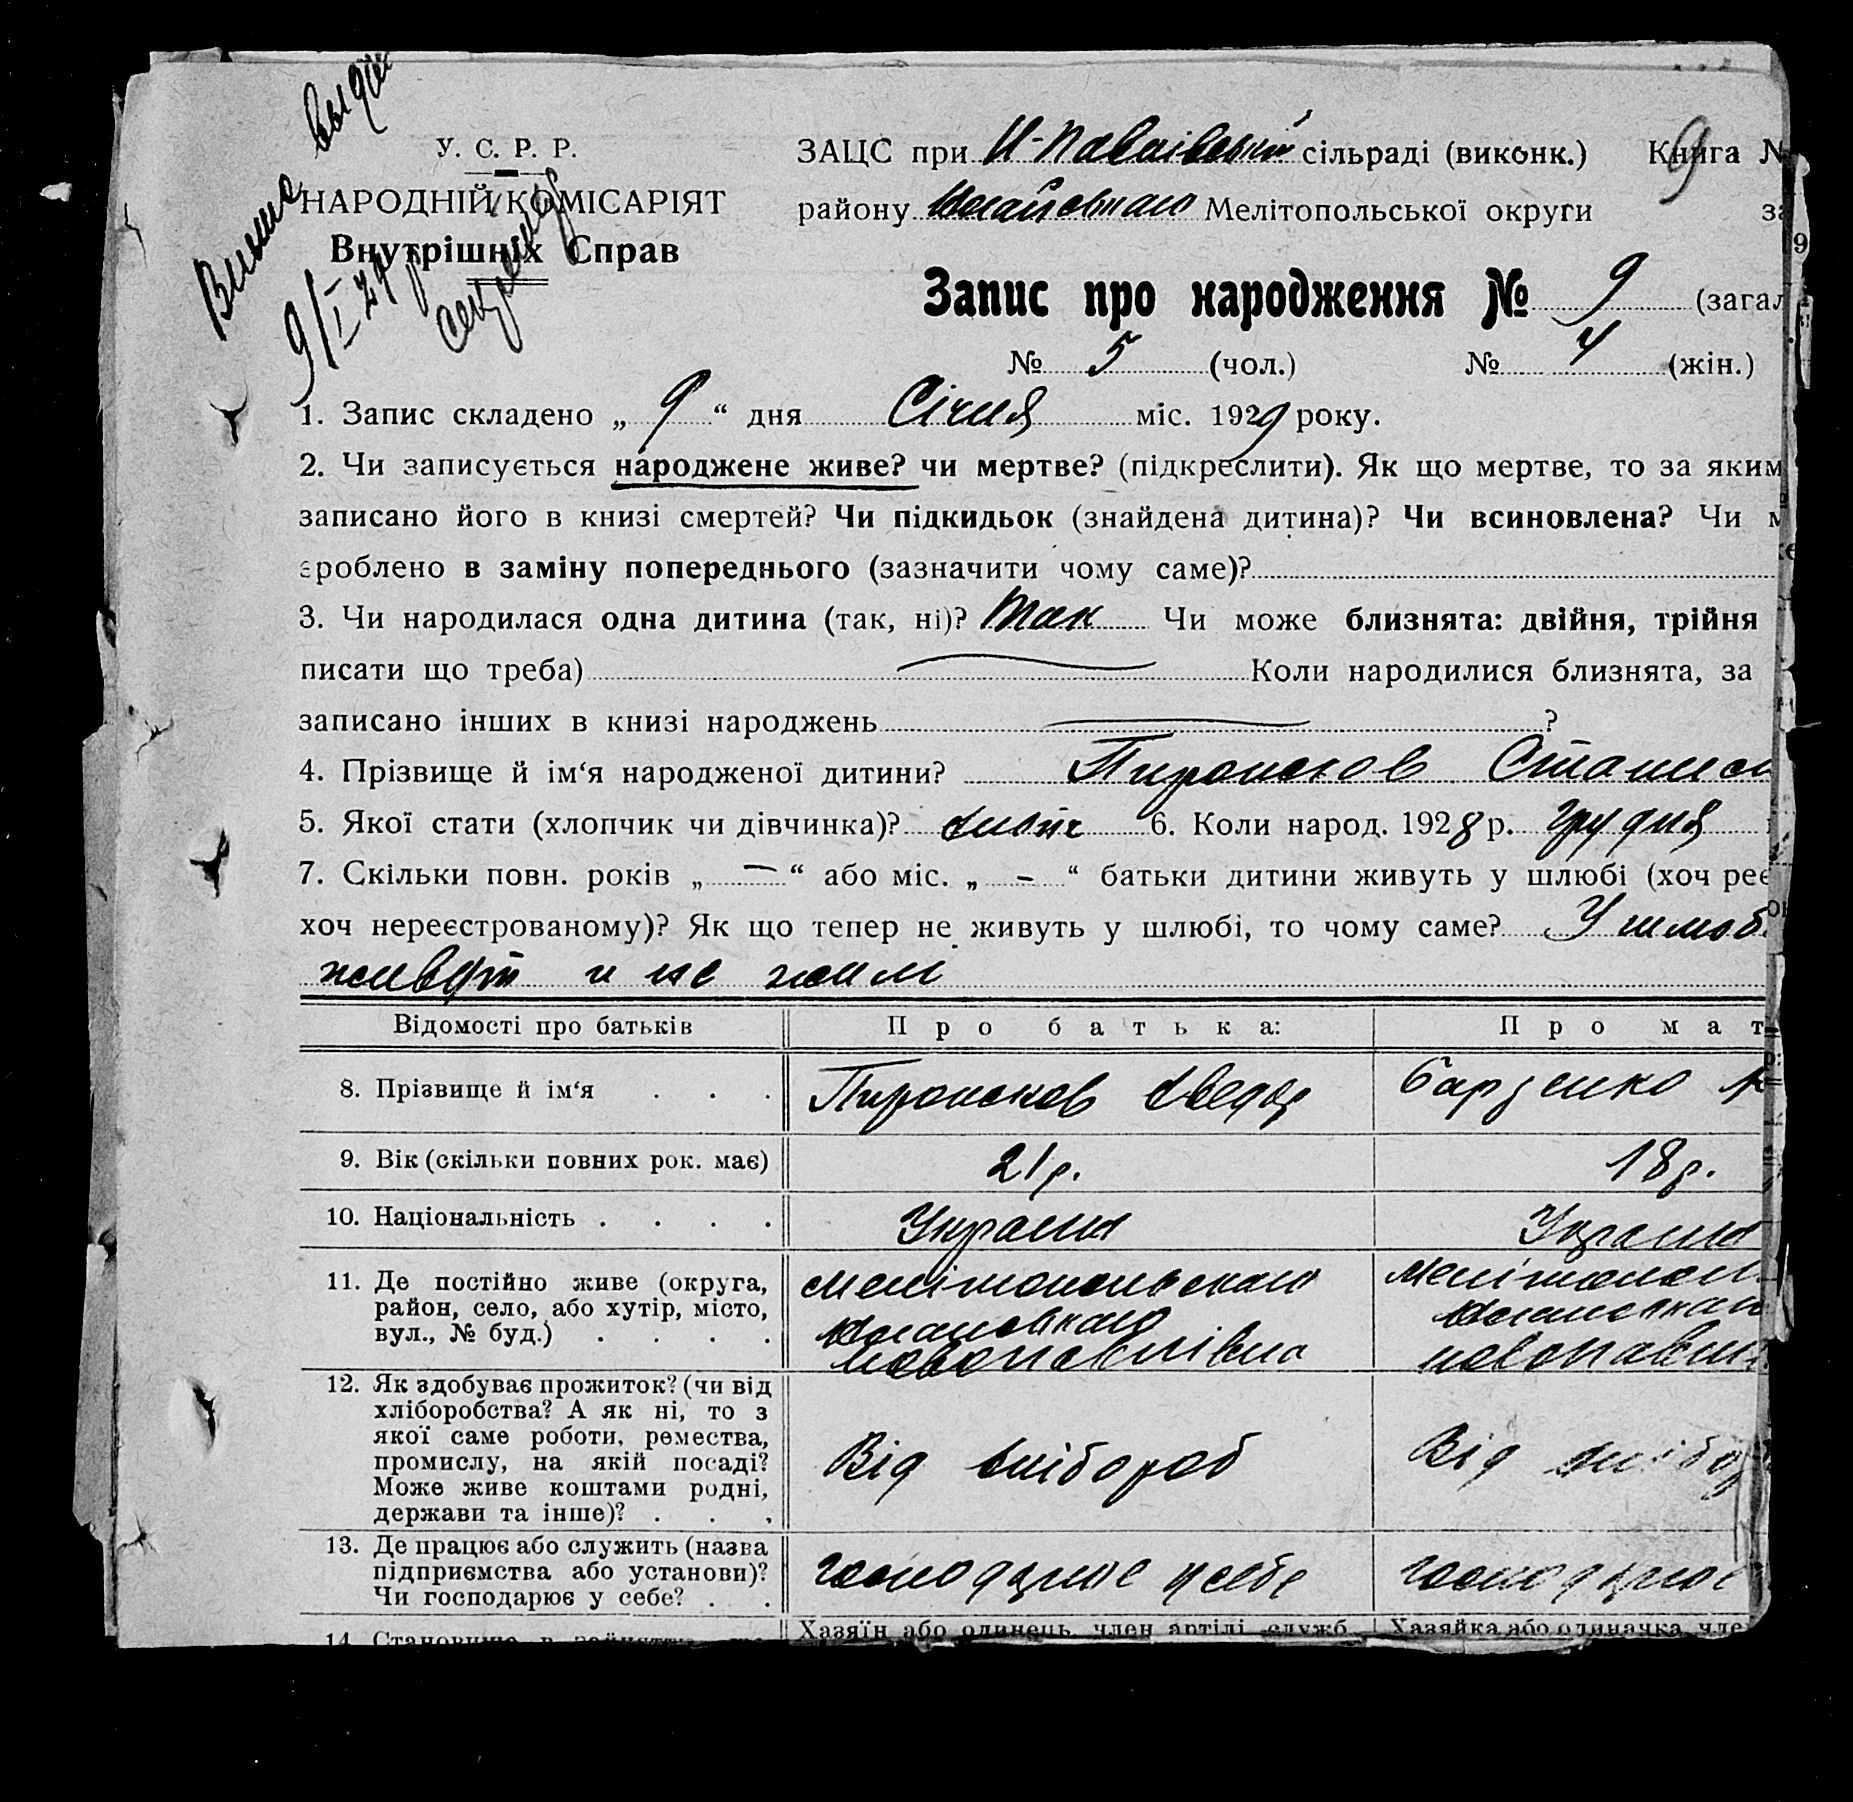 Випис выдан
9/I 29 р
У. С. Р. Р.
НАРОДНІЙ КОМІСАРІЯТ
Внутрішніх Справ
ЗАЦС при Н-Павлівській сільраді (виконк.) Книга № 9
району Мелітопольської округи
Запис про народження № 9 (загал
№ 5 (чол.) № 4 (жін.)
1. Запис складено „ 9 “ дня Січня міс. 1929 року.
2. Чи записується народжене живе? чи мертве? (підкреслити). Як що мертве, то за яким
записано його в книзі смертей? Чи підкидьок (знайдена дитина)? Чи всиновлена? Чи
зроблено в заміну попереднього (зазначити чому саме)?
3. Чи народилася одна дитина (так, ні)? Так Чи може близнята: двійня, трійня
писати що треба) Коли народилися близнята, за
записано інших в книзі народжень ?
4. Прізвище й ім‘я народженої дитини?
5. Якої стати (хлопчик чи дівчинка)? хлопч 6. Коли народ. 1928 р. грудня
7. Скільки повн. років „ — “ або міс. „ - “ батьки дитини живуть у шлюбі (хоч реє
хоч нереєстрованому)? Як що тепер не живуть у шлюбі, то чому саме? У шлюб
живут и не жили
Відомості про батьків Про батька: Про мат
8. Прізвище й ім‘я . . .
9. Вік (скільки повних рок. має) 21 р. 18 р.
10. Національність . . . . Украин Украин
11. Де постійно живе (округа,
район, село, або хутір, місто,
вул., № буд.) . . . .
Мелітопольская
Новопавлівка
12. Як здобуває прожиток? (чи від
хліборобства? А як ні, то з
якої саме роботи, ремества,
промислу, на якій посаді?
Може живе коштами родні,
держави та інше)? . . .
Від хлібороб Від хлібор
13. Де працює або служить (назва
підприємства або установи)?
Чи господарює у себе? . .
господарює у себе господарює
14. Становище в
Хазяїн або одинець, член артілі, служб. Хазяйка або одиначка, чле